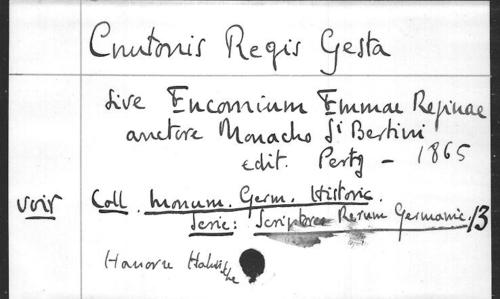 Cnutonis Regis Gesta
sive Encomium Emmae Reginae
auctore Monacho Sti Bertini
edit. Pertz - 1865
voir Coll. monum. Germ. Historic.
Serie: Scriptores Rerum Germanic. /3
Hanovre